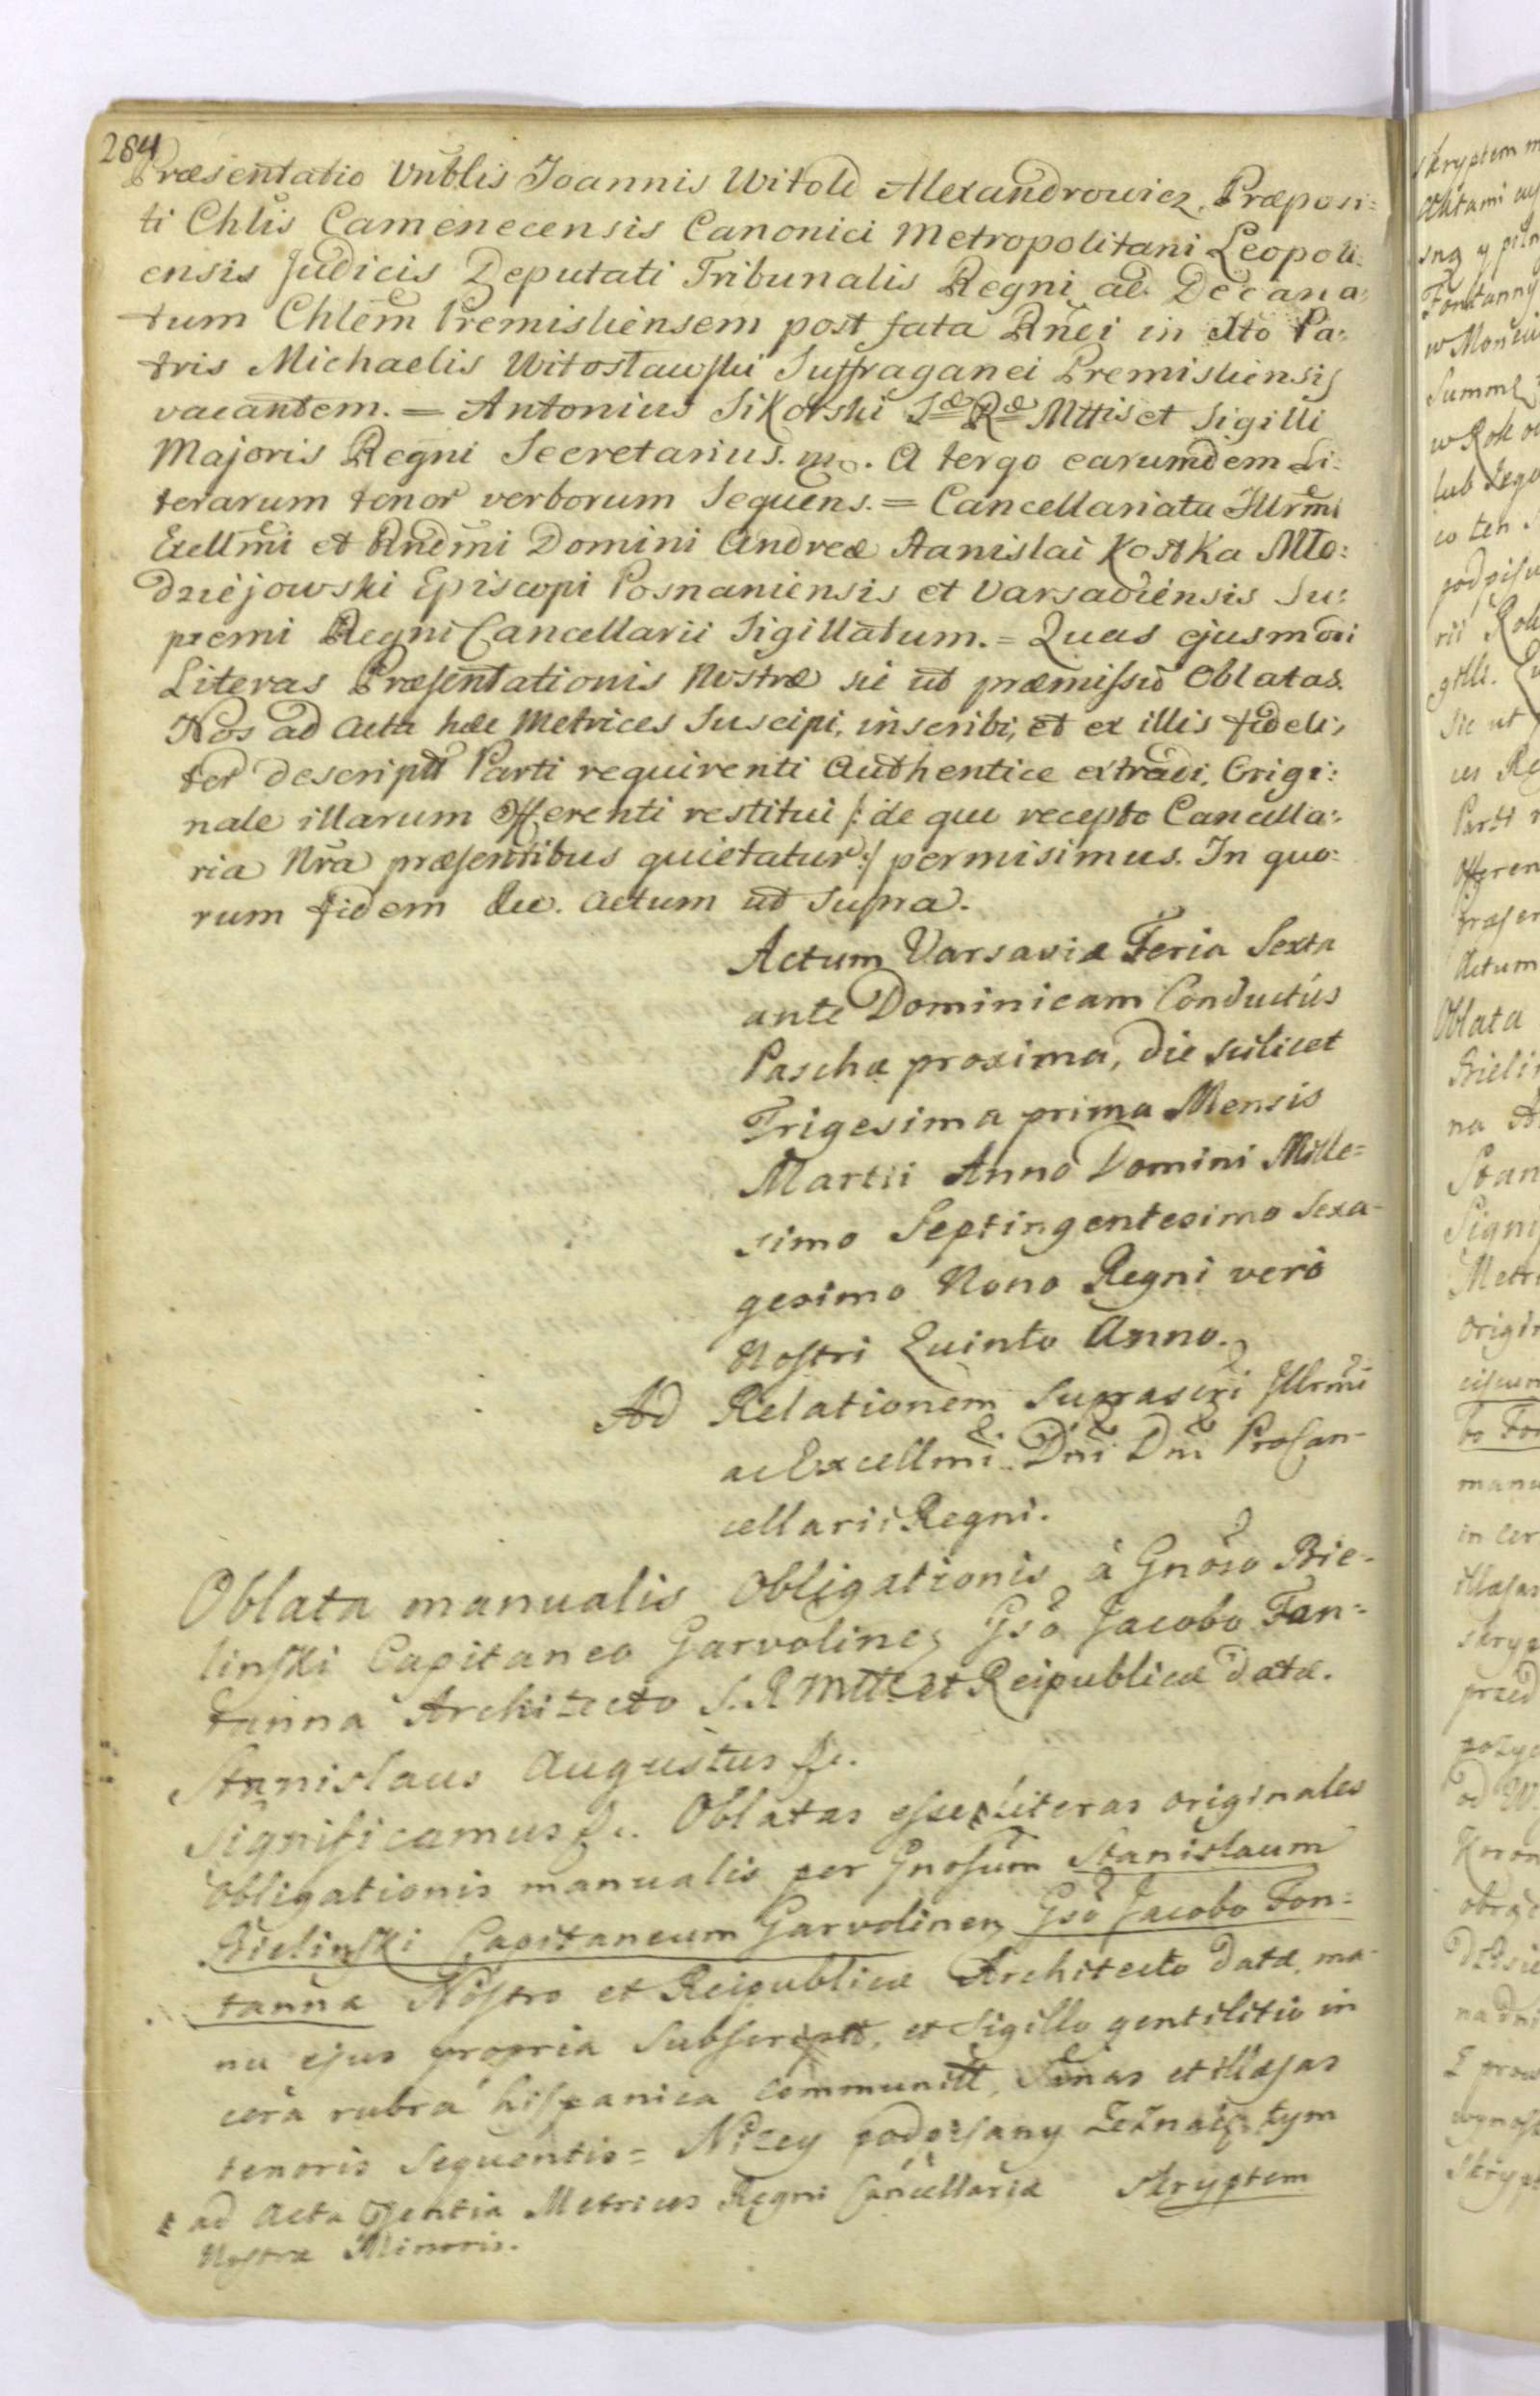 284
Præsentatio Vnblis Joannis Witold Alexandrowicz, Præposi:
ti Chlis Camenecensis Canonici Metropolitani Leopoli:
ensis Judicis Deputati Tribunalis Regni ad Decana:
tum Chlem Premisliensem post fata Rnei in Xto Pa:
tris Michaelis Witosławski Suffraganei Premisliensis
vacantem. = Antonius Sikorski Sæ Ræ Mttis et Sigilli
Majoris Regni Secretarius. mp. A tergo earumdem Li:
terarum tenor verborum sequens. = Cancellariatu Illrmi
Exellmi et Rndmi Domini Andreæ Stanislai Kostka Mło:
dziejowski Episcopi Posnaniensis et Varsaviensis Su:
premi Regni Cancellarii Sigillatum. = Quas ejusmodi
Literas Præsentationis Nostræ sic ut præmissũ Oblatas.
Nos ad Acta hæc Metrices Suscipi, inscribi, et ex illis fideli,
ter descriptt Parti requirenti Authentice extradi, Origi:
nale illarum Offerenti restitui /: de quo recepto Cancella:
ria Nra præsentibus quietatur :/ permisimus. In quo:
rum fidem &c. Actum ut Supra.
Actum Varsaviæ Feria Sexta
ante Dominicam Conductûs
Paschæ proxima, die scilicet
Trigesima prima Mensis
Martii Anno Domini Mille=
simo Septingentesimo Sexa-
gesimo Nono Regni verò
Nostri Quinto Anno.
Ad Relationem Suprascri Illrmi
ac Excellmi Dni Dni Procan-
cellarii Regni.
Oblata manualis Obligationis à Gnoso Bie-
linski Capitaneo Garvolinen Gso Jacobo Fon=
tanna Architecto S. R. Mttis et Reipublicæ datæ.
Stanislaus Augustus &c.
Significamus &c. Oblatas esse literas originales
Obligationis manualis per Gnosum Stanislaum
Bielinski Capitaneum Garvolinen Gso Jacobo Fon=
tanna Nostro et Reipublicæ Architecto datæ, ma-
nu ejus propria Subscriptt, et Sigillo gentilitio in
cera rubra hispanica communitt, Sanas et illæsas
tenoris sequentis = Nizey podpisany Zeznaię tym
ad Acta Metrices Regni Cancellariæ
Skryptem
Nostræ Minoris.